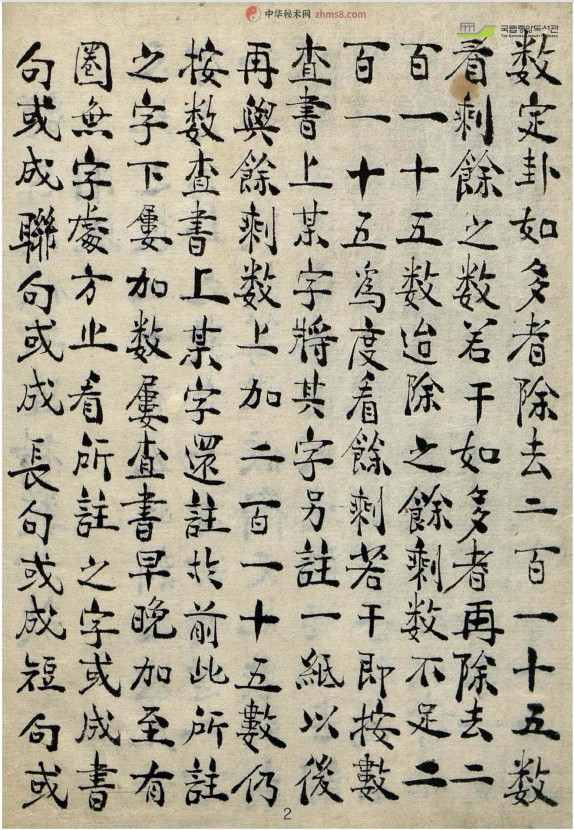 中华秘术网 zhms8.com
국립중앙도서관
数定卦如多者除去二百一十五数
看剩餘之数若干如多者再除去二
百一十五数迨除之餘剩数不足二
百一十五為度看餘剩若干即按數
查書上某字將其字另註一紙以後
再與餘剩数上加二百一十五數仍
按数查書上某字還註於前此所註
之字下屢加数屢查書早晚加至有
圈無字處方止看所註之字或成書
句或成聯句或成長句或成短句或
2